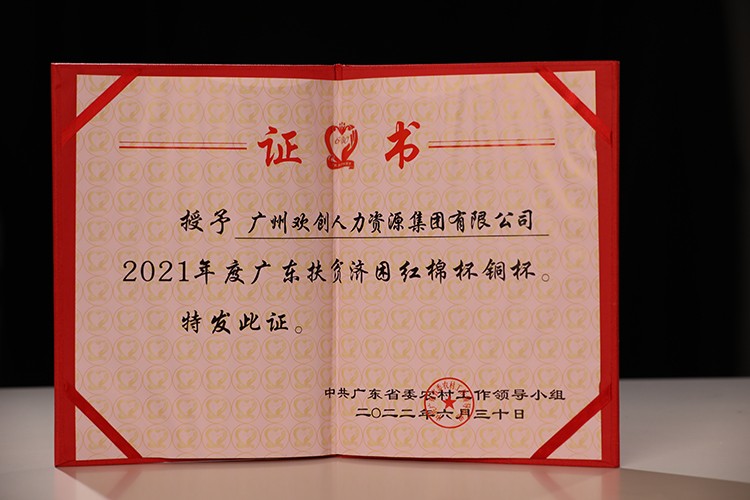 证书
授予 广州欢创人力资源集团有限公司
2021年度广东扶贫济困红棉杯铜杯。
特发此证。
中共广东省委农村工作领导小组
二〇二二年六月三十日